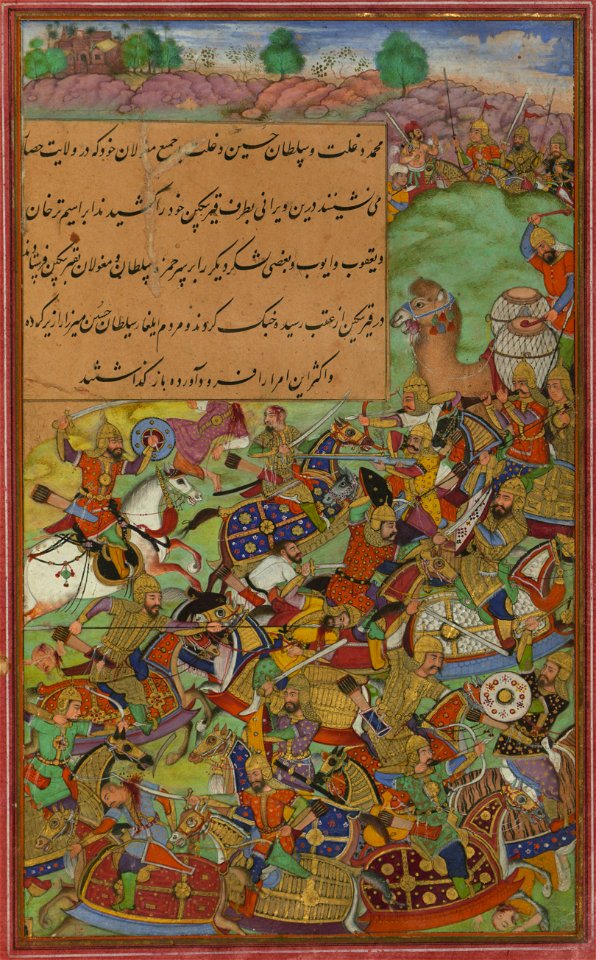 محمد دغلت و سلطان حسین دغلت و جمع مغولان خود که در ولایت حصار
می نشینند درین ویرانی بطرف قیرتکین خود را کشیدند ابراهیم ترخان
و یعقوب و ایوب و بعضی لشکر دیگر را بر سر حمزه سلطان و مغولان بقیرتکین فرستادند
در قیرتکین از عقب رسیده جنک کردند و مردم ایلغار سلطان حسین میرزا را زیر کرده
و اکثر این امرا را فرود آورده باز کذاشتند